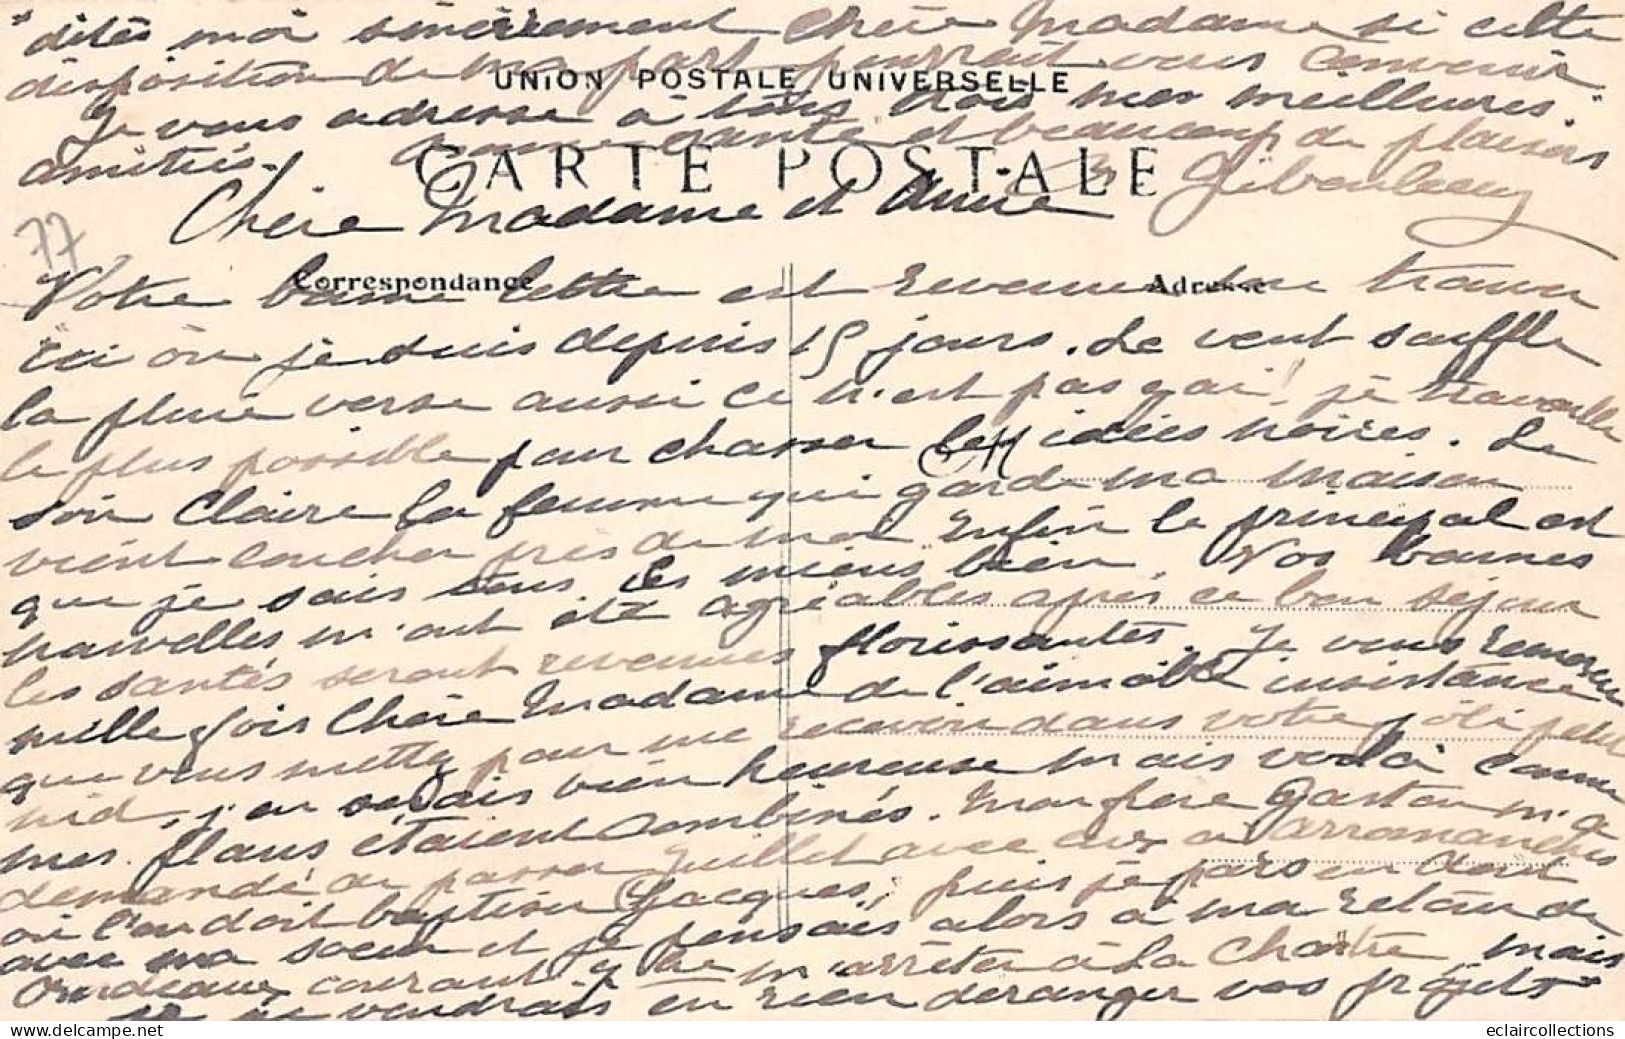 "dites moi sincèrement chère Madame si cette
disposition de ma part pourrait vous convenir
UNION POSTALE UNIVERSELLE
Je vous adresse à tous trois mes meilleures"
amitiés. Bonne santé et beaucoup de plaisirs
CARTE POSTALE
77
Chère Madame et Amie
Correspondance
Adresse
Votre bonne lettre est revenue me trouver
ici où je suis depuis 15 jours. Le vent souffle
la pluie verse aussi ce n'est pas gai! je travaille
le plus possible pour chasser les idées noires. Le
soir Claire la femme qui garde ma maison
vient coucher près de moi enfin le principal est
que je sais tous les miens bien. Vos bonnes
nouvelles m'ont été agréables après ce bon séjour
les santés seront revenues florissantes. Je vous remercie
mille fois Chère Madame de l'aimable insistance
que vous mettez pour me recevoir dans votre joli petit
nid, j'en serais bien heureuse mais voilà comme
mes plans étaient combinés. Mon frère Gaston m'a
demandé de passer Juillet avec eux à Arromanches
où l'on doit baptiser Jacques, puis je pars en août
avec ma soeur et je pensais alors à ma retour de
Bordeaux courant m'arrêter à La Chartre, mais
je ne voudrais en rien déranger vos projets"